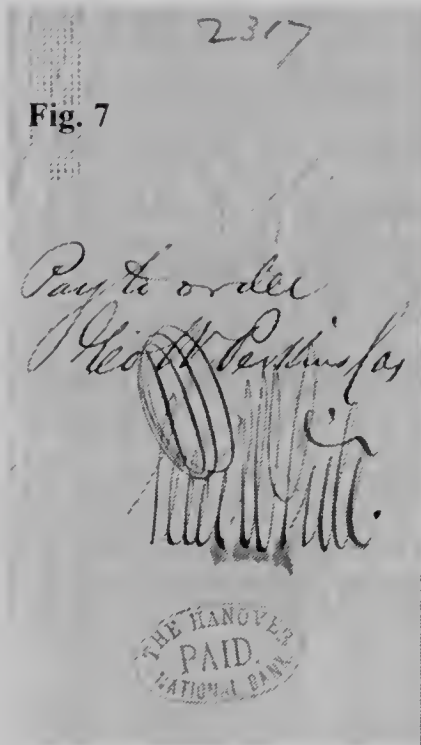 2317
Fig. 7
Pay to order
Geo W Perkins Cas
THE HANOVER
PAID.
NATIONAL BANK